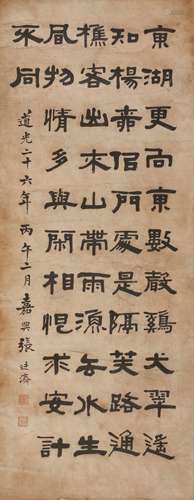 東湖更向東數聲鷄犬翠遙
知楊侶門處是隔芙路通
樵客出來山帶雨漁去水生
風物情多與閑相恨求安計
不同
道光二十六年丙午二月嘉興張廷濟